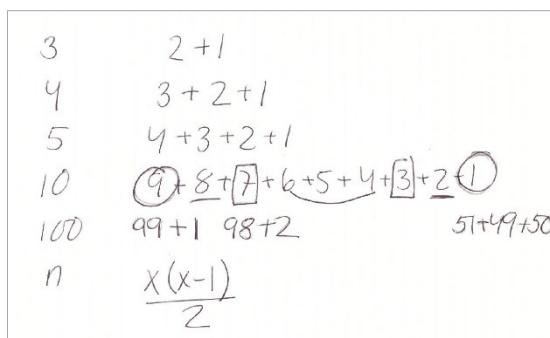 3 2+1
4 3+2+1
5 4+3+2+1
10 9+8+7+6+5+4+3+2+1
100 99+1 98+2 51+49+50
n x(x-1)
2